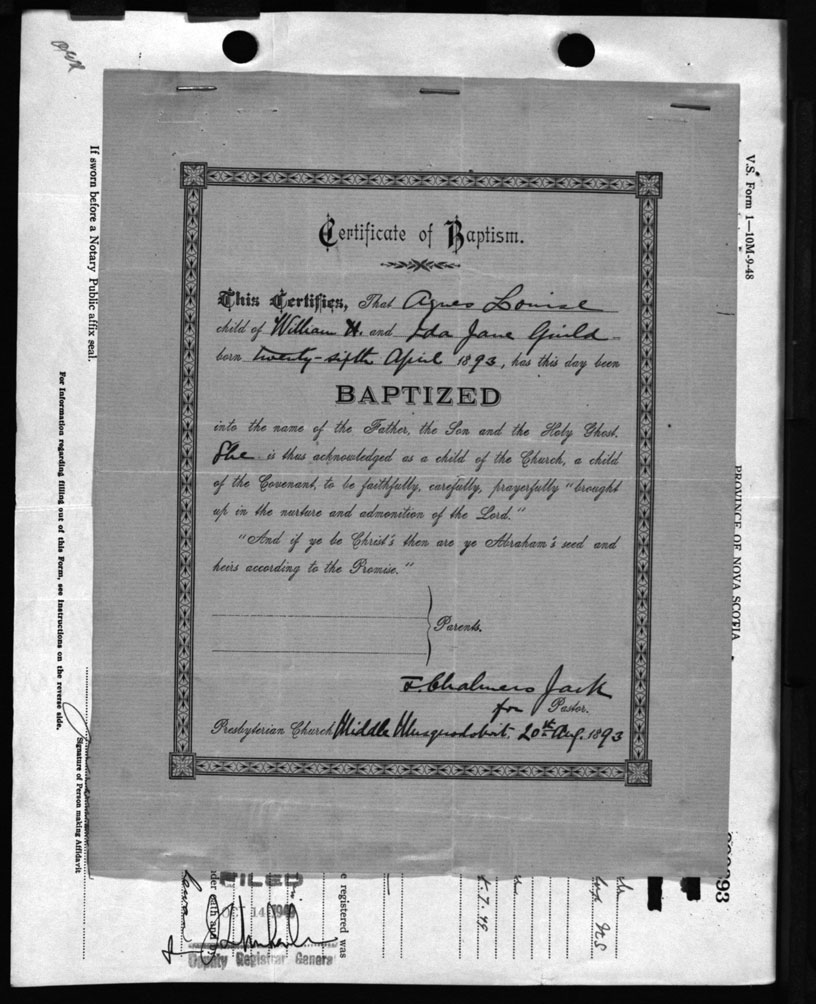 Certificate of Baptism.
This Certifies, That Agnes Louise
child of William H. and Ida Jane Guild
born twenty-sifth April 1893, has this day been
BAPTIZED
into the name of the Father, the Son and the Holy Ghost.
She is thus acknowledged as a child of the Church, a child
of the Covenant, to be faithfully, carefully, prayerfully "brought
up in the nurture and admonition of the Lord."
"And if ye be Christ's then are ye Abraham's seed and
heirs according to the Promise."
Parents.
F. Chalmers Jack
for Pastor.
Presbyterian Church Middle Musquodoboit 20th Aug. 1893
If sworn before a Notary Public affix seal.
For Information regarding filling out of this Form, see instructions on the reverse side.
Signature of Person making Affidavit
V.S. Form 1—10M-9-48
PROVINCE OF NOVA SCOTIA
93
e registered was
FILED
14
Deputy Registrar General
49
NS